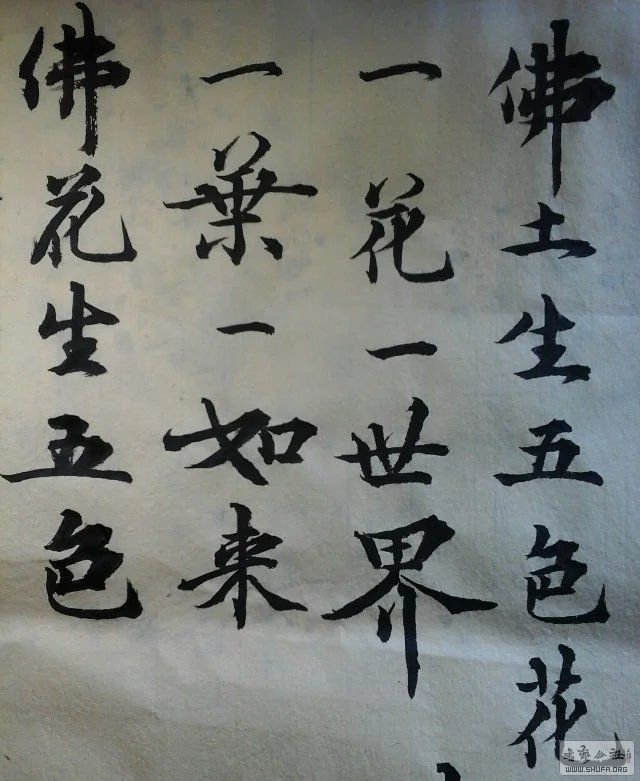 佛土生五色花
一花一世界
一葉一如来
佛花生五色
WWW.SHUFA.ORG